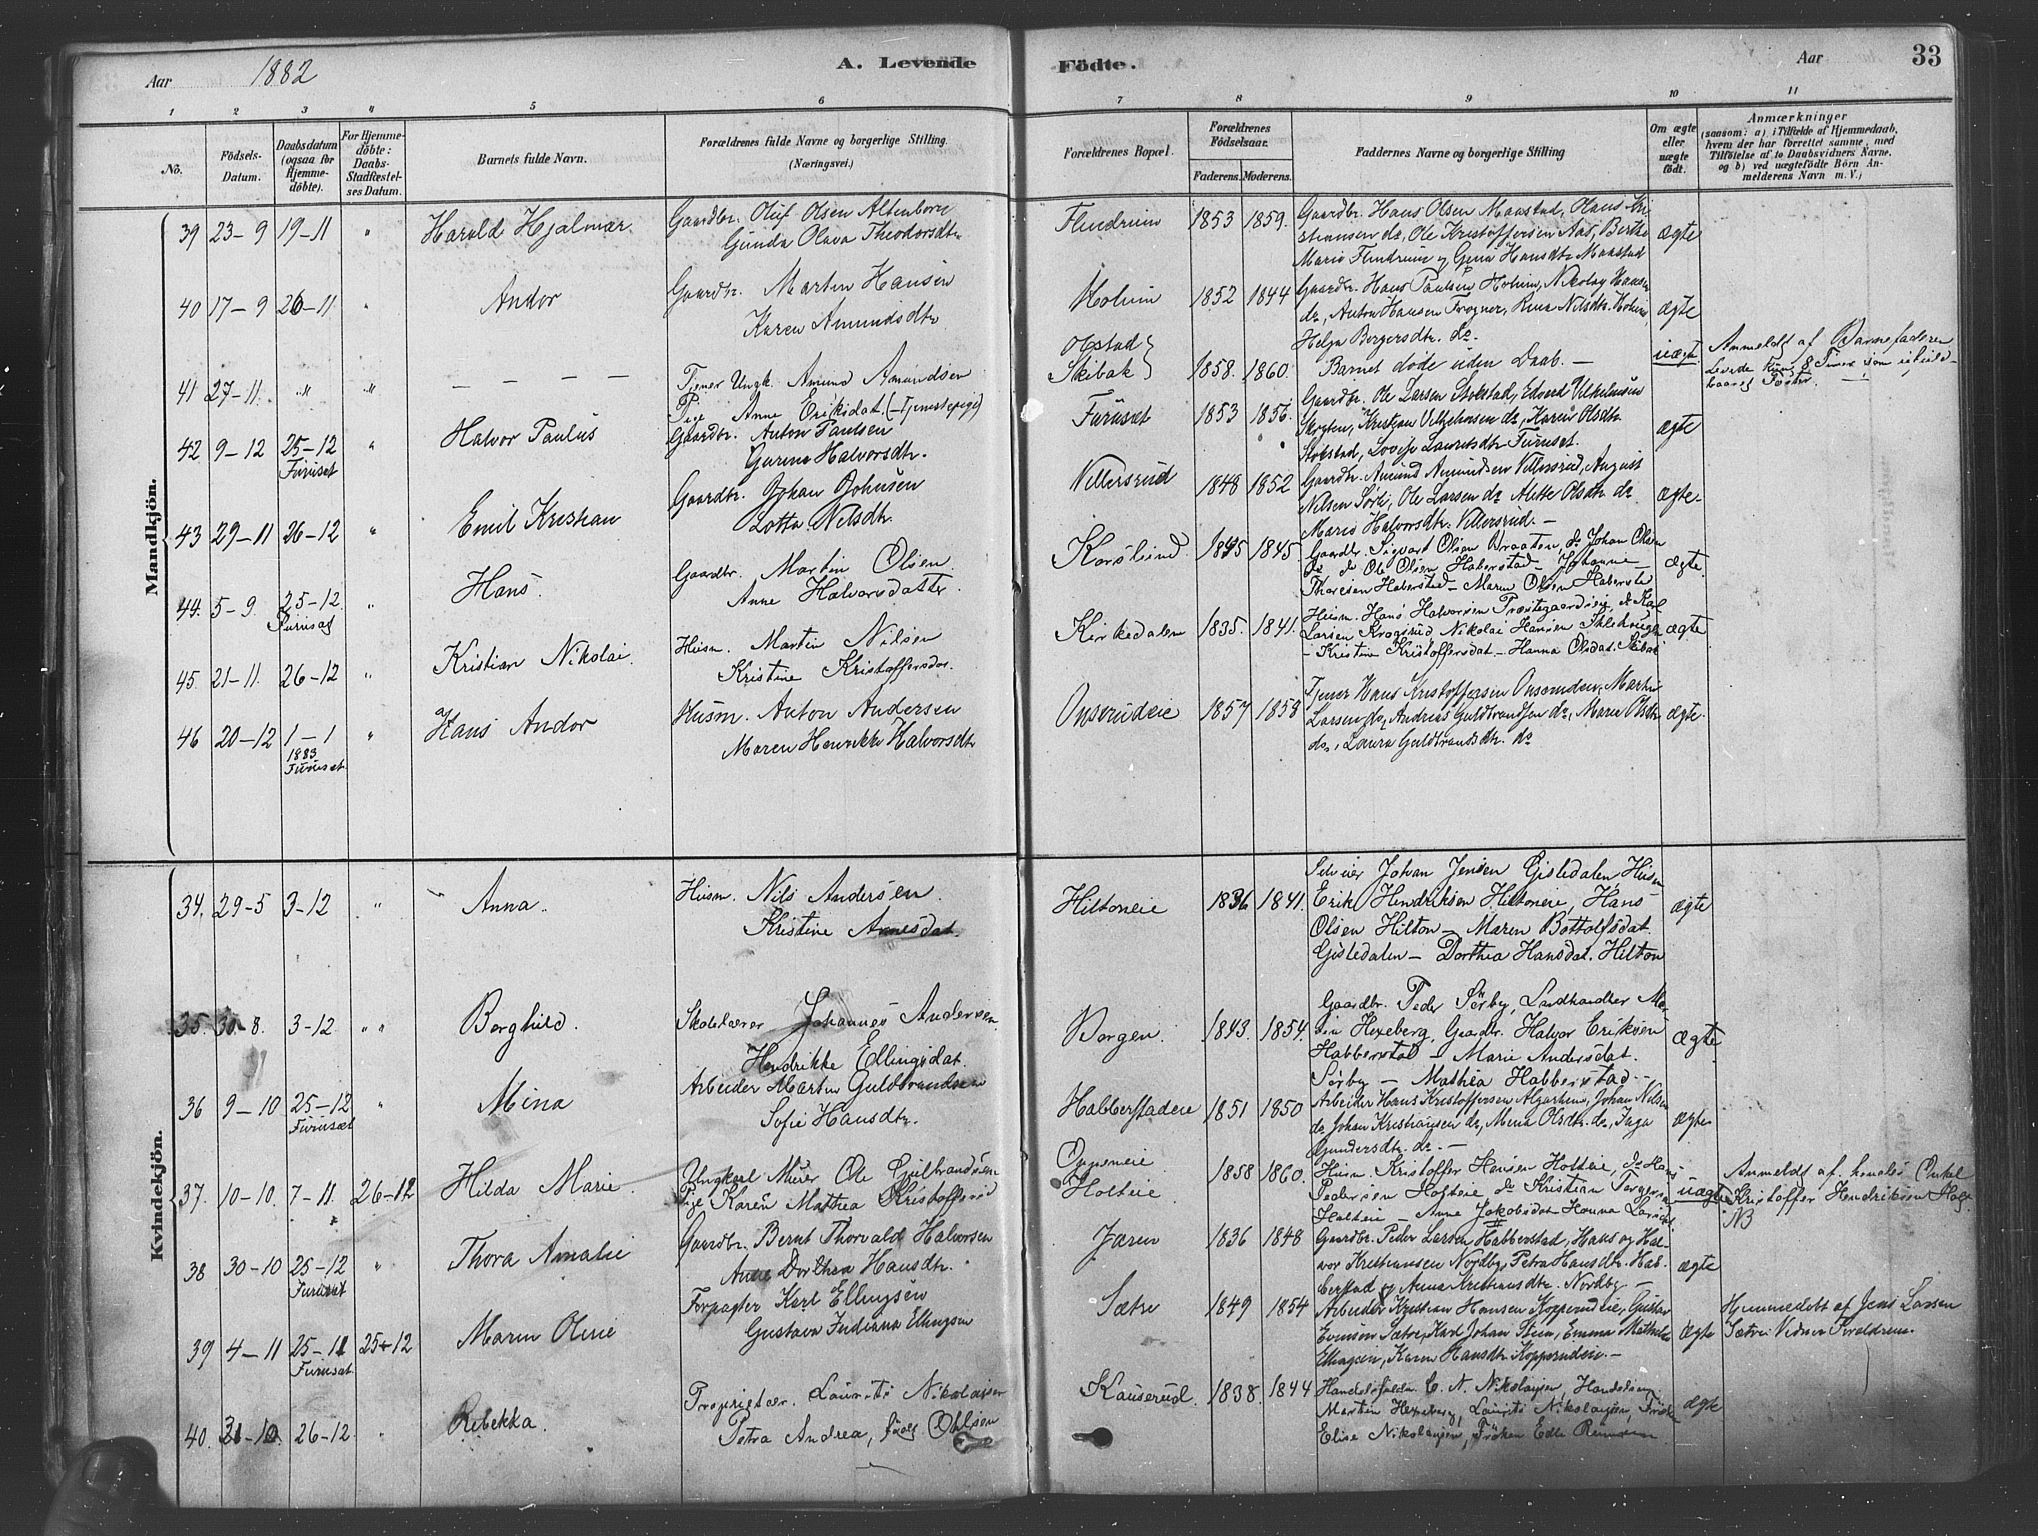 Aar 1882 A. Levende Födte. Aar 33
1 2 3 4 5 6 7 8 9 10 11
No.
Födsels-Datum.
Daabsdatum (ogsaa for Hjemme-döbte).
For Hjemme-döbte: Daabs-Stadfæstel-ses Datum.
Barnets fulde Navn.
Forældrenes fulde Navne og borgerlige Stilling.
(Næringsvei.)
Forældrenes Bopæl.
Forældrenes Födselsaar.
Faderens. Moderens.
Faddernes Navne og borgerlige Stilling
Om ægte eller uægte födt.
Anmærkninger
(saasom: a) i Tilfælde af Hjemmedaab, hvem der har forrettet samme, med Tilföielse af to Daabsvidners Navne, og b) ved uægtefödte Börn An-melderens Navn m. V.)
Mandkjön.
39 23-9 19-11 " Harald Hjalmar. Gaardbr. Oluf Olsen Altenborn
Gunda Olava Theodorsdtr
Flindrum 1853 1859. Gaardbr. Hans Olsen Maastad, Hans Kri-
stiansen do, Ole Kristoffersen Aas, Berthe
Marie Flindrum og Gina Hansdtr Maastad
ægte
40 17-9 26-11 " Andor Gaardbr. Martin Hansen
Karen Amundsdtr
Holum 1852 1844 Gaardbr. Hans Paulsen Holum, Nikolay Hansen
do, Anton Hansen Frogner, Rina Nilsdtr. Holum,
Helga Bergersdtr. do.
ægte
41 27-11. " " — — — — Tjener Ungk. Amund Amundsen
Pige Anne Eriksdat. (-Tjenestepige)
Obstad
Skibak 1858. 1860. Barnet døde uden Daab. —
uægte Anmeldt af Barnefaderen
Levede kun 8 Timer som
baaret Foster. —
42 9-12 25-12 Furuset " Halvor Paulus Gaardbr. Anton Paulsen
Gurine Halvorsdtr.
Furuset 1853 1856. Gaardbr. Ole Larsen Stokstad, Edvard Vilhelmsen
Skryten, Kristian Vilhelmsen do, Karen Olsdtr.
Stokstad, Lovise Lauritsdtr Furuset.
ægte
43 29-11 26-12 " Emil Kristian Gaardbr. Johan Johnsen
Lotta Nilsdtr.
Villersrud 1848 1852 Gaardbr. Amund Amundsen Villersrud, August
Nilsen Sørli, Ole Larsen do Alette Olsdtr. do
Marie Halvorsdtr. Villersrud. —
ægte-
44. 5-9 25-12 Furuset " Hans. Gaardbr. Martin Olsen.
Anne Halvorsdatter.
Korslund. 1845 1845. Gaardbr. Sigvart Olsen Braaten, do Johan Olsen
do do Ole Olsen Haberstad - Johanne
Thoresen Haberstad - Maren Olsen Habersta
ægte.
45. 21-11. 26-12 " Kristian Nikolai. Husm. Martin Nilsen
Kristine Kristoffersdat.
Kirkedalen 1835. 1841. Husm. Hans Halvorsen Præstegaardseie, do Karl
Larsen Krogsrud, Nikolai Hansen
- Kristine Kristoffersdat. - Hanna Olsdat. Skibak
ægte
46 20-12 1-1 1883 Furuset " Hans Andor Husm. Anton Andersen
Maren Henrikke Halvorsdtr
Onsrudeie 1857 1858 Tjener Hans Kristoffersen Onsrudeie, Martin
Larsen do, Andreas Guldbrandsen do, Maren Olsdtr
do, Laura Guldbrandsdtr. do
ægte.
Kvindekjön.
34. 29-5 3-12 " Anna. Husm. Nils Andersen.
Kristine Arnesdat.
Hiltoneie 1836 1841. Selveier Johan Jensen Gistedalen Husm
Erik Hendriksen Hiltoneie, Hans
Olsen Hilton - Maren Bottolfsdat.
Gistedalen - Dorthea Hansdat. Hilton
ægte
35. 30-8. 3-12. " Borghild. Skolelærer Johannes Andersen.
Hendrikke Ellingsdat.
Borgen. 1843. 1854. Gaardbr. Peder Sørby, Landhandler Mar-
tin Hexeberg, Gaardbr. Halvor Eriksen
Habberstad - Marie Andersdat.
Sørby - Mathea Habberstad -
ægte.
36 9-10 25-12 Furuset " Mina Arbeider Martin Guldbrandsen
Sofie Hansdtr.
Habberstadeie 1851 1850 Arbeider Hans Kristoffersen Algarheim, Johan Nilsen
do, Johan Kristiansen do, Mina Olsdtr. do, Inga
Gundersdtr. do. —
ægte
37. 10-10. 7-11. 26-12 Hilda Marie. Ungkarl Murer Ole Gulbrandsen
Pige Karen Mathea Kristoffersd
Oppeneie
Holteie. 1858 1860. Husm. Kristoffer Hansen Holteie, do Hans
Pedersen Holteie do Kristian Torgersen
Holteie - Anne Jakobsdat Hanna Larsdat
uægte Anmeldt af hendes Onkel
Kristoffer Hendriksen Holt
NB
38 30-10 25-12 Furuset " Thora Amalie Gaardbr. Bernt Thorvald Halvorsen
Anne Dorthea Hansdtr.
Jaren 1836 1848 Gaardbr. Peder Larsen Habberstad, Hans og Hal-
vor Kristiansen Nordby, Petra Hansdtr. Hab-
berstad og Anna Kristiansdtr. Nordby —
ægte
39 4-11 25-11 Furuset 25-12 Maren Oline Forpagter Karl Ellingsen
Gustava Indiana Ellingsen
Sætre 1849 1854 Arbeider Kristian Hansen Kopperudeie, Gustav
Evensen Sætre, Karl Johan Stein, Emma Mathilde
Ellingsen, Karen Hansdtr. Kopperudeie. —
ægte Hjemmedøbt af Jens Larsen
Sætre. Vidner Forældrene.
40. 31-10. 26-12. " Rebekka. Proprietær. Laurits Nikolaisen
Petra Andrea, født Ohlsen
Kauserud. 1838. 1844 Handelsfuldm. C. N. Nikolaysen, Handelsm
Martin Hexeberg, Laurits Nikolaysen, Frøken
Elise Nikolaysen, Frøken Edle
ægte